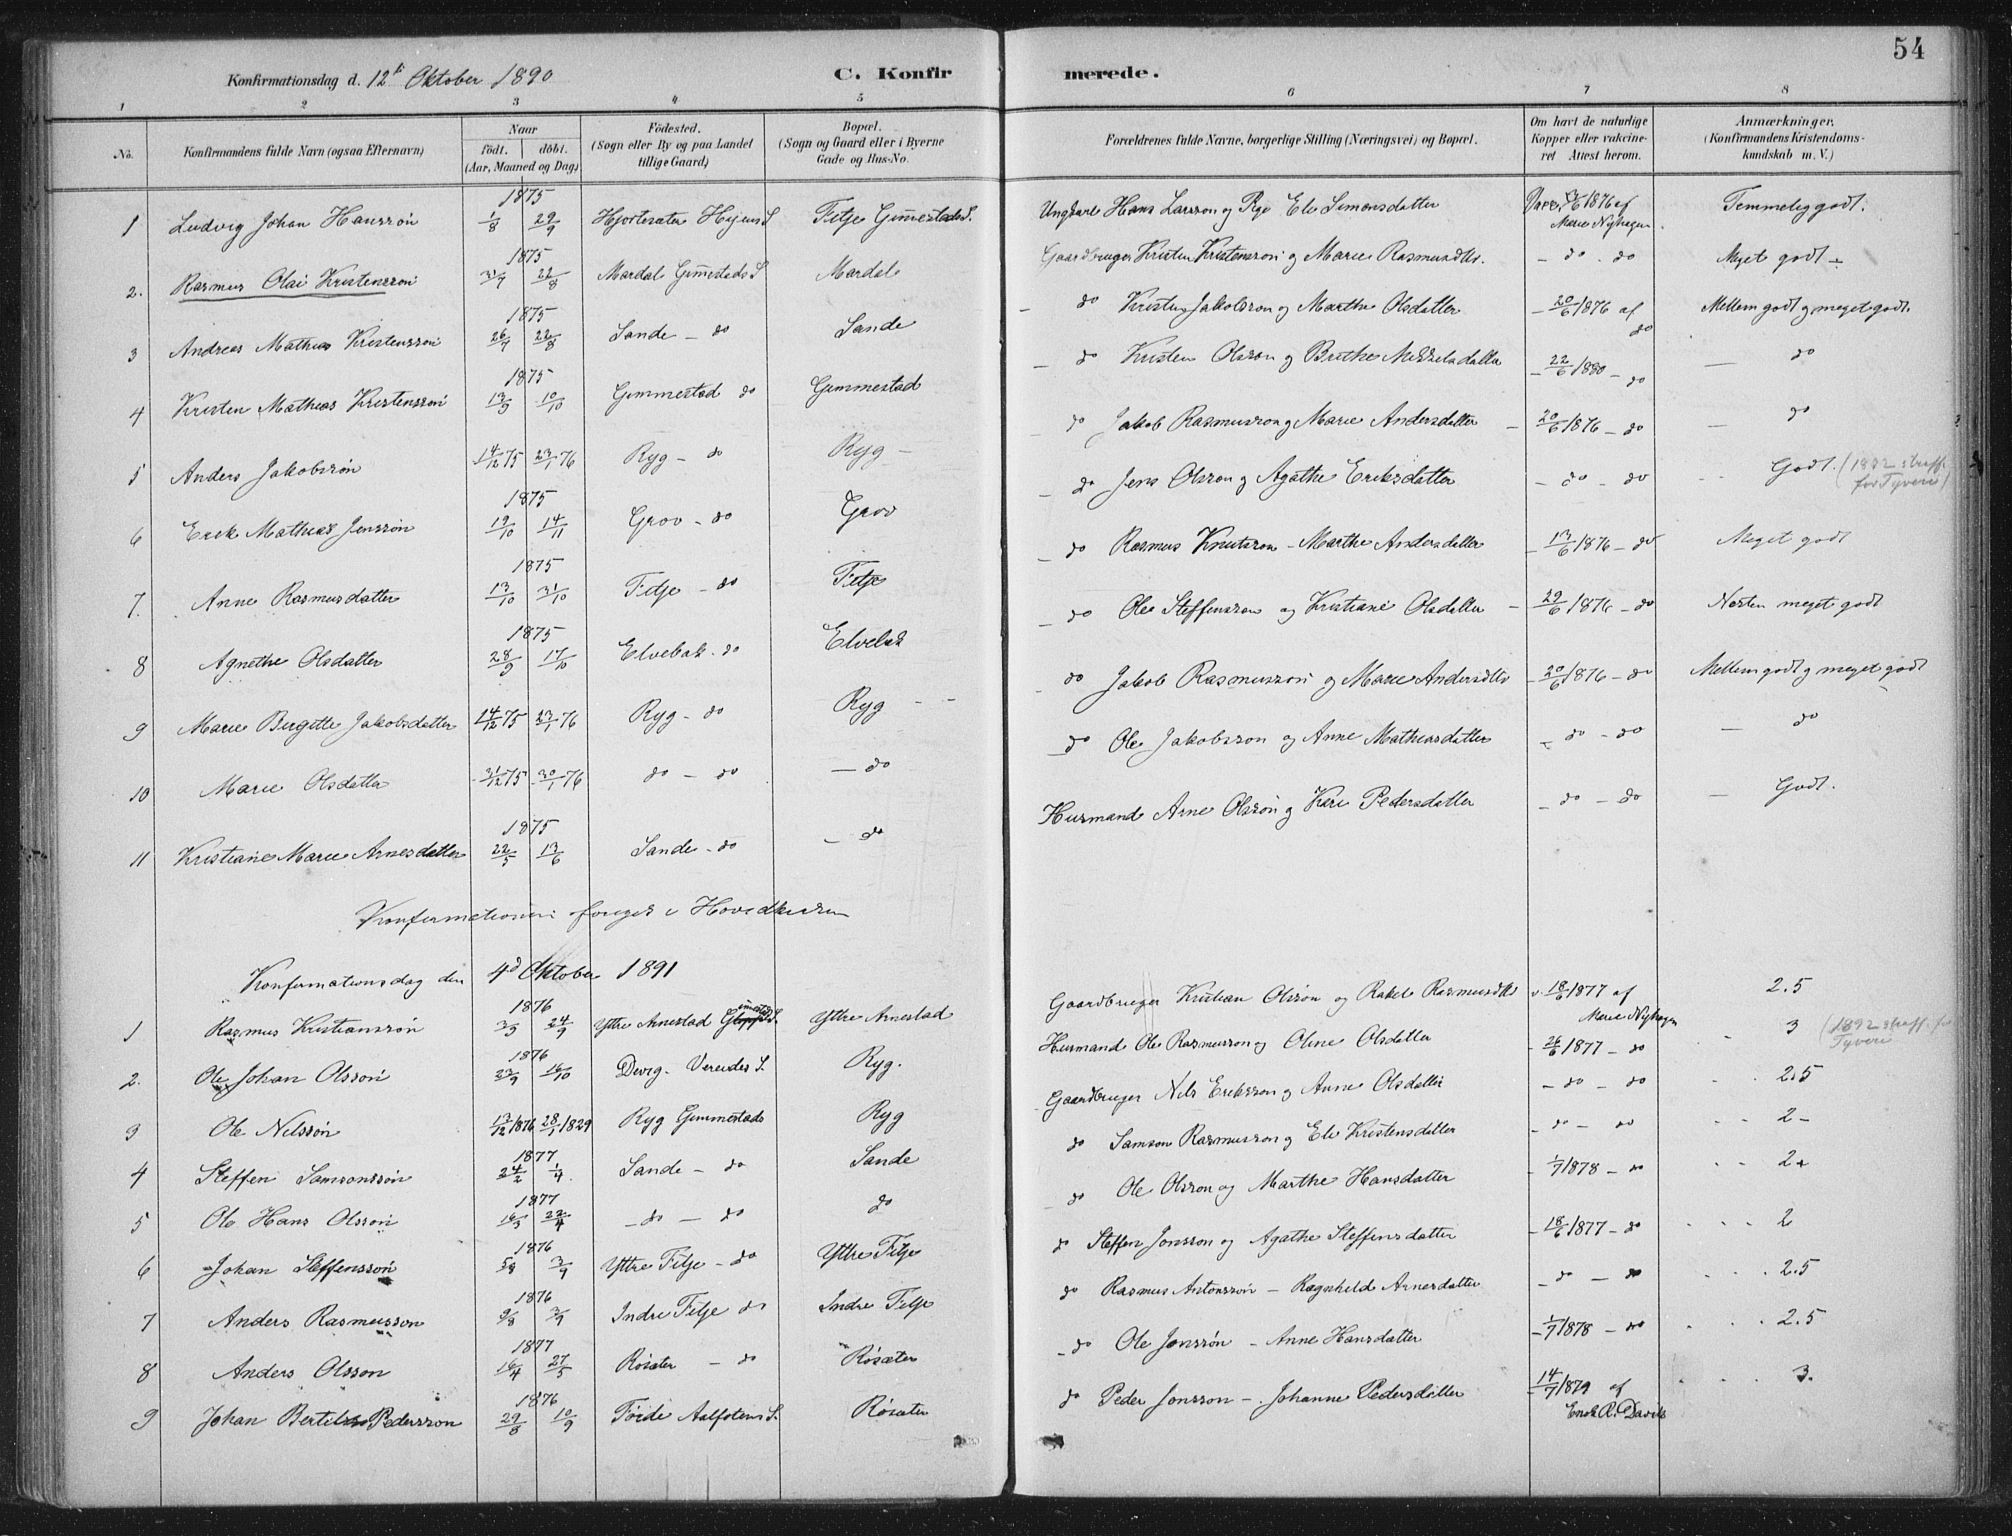 54
Konfirmationsdag d. 12te Oktober 1890 C. Konfirmerede.
1 2 3 4 5 6 7 8
No. Konfirmandens fulde Navn (ogsaa Efternavn) Naar födt. döbt. (Aar, Maaned og Dag) Födested. (Sogn eller By og paa Landet tillige Gaard) Bopæl. (Sogn og Gaard eller i Byerne Gade og Hus-No. Forældrenes fulde Navne, borgerlige Stilling (Næringsvei) og Bopæl. Om havt de naturlige Kopper eller vakcineret Attest herom. Anmærkninger. (Konfirmandens Kristendomskundskab m. V.)
1 Ludvig Johan Hanssøn 1875 1/8 29/9 Hjortesæter Hyens S. Fitje Gimmestads S. Ungkarl Hans Larsson og Pige Eli Simonsdatter Vacc. 1876 af Marie Nyhagen Temmelig godt.
2. Rasmus Olai Kristenssøn 1875 31/7 22/8 Mardal Gimmestads S Mardal Gaardbruger Kristen Kristenssøn og Marie Rasmusdtr. - do - do Meget godt
3 Andreas Mathias Kristenssøn 1875 26/7 22/8 Sande - do Sande - do Kristen Jakobsson og Marthe Olsdatter - 20/6 1876 af do Mellem godt og meget godt
4 Kristen Mathias Kristenssøn 1875 13/9 10/10 Gimmestad do Gimmestad - do Kristen Olsson og Brithe Mikkelsdatter - 22/6 1880 - do - do
5 Anders Jakobssøn 14/12 75 23/1 76 Ryg - do Ryg - - do Jakob Rasmusson og Marie Andersdatter - 20/6 1876 - do - do
6 Erik Mathias Jenssøn 1875 19/10 14/11 Grov - do Grov - do Jens Olsson og Agathe Eriksdatter - do - do Godt. (1892 straff. for Tyveri)
7. Anne Rasmusdatter 1875 13/10 31/10 Fitje - do Fitje - do Rasmus Knutsson - Marthe Andersdatter - 13/6 1876 - do Meget godt
8 Agnethe Olsdatter 1875 28/9 17/10 Elvebak - do Elvebak - do Ole Steffensson og Kristiane Olsdatter - 29/6 1876 - do Næsten meget godt
9 Marie Birgitte Jakobsdatter 14/12 75 23/1 76 Ryg - do Ryg - - - do Jakob Rasmusson og Marie Andersdtr - 20/6 1876 - do Mellem godt og meget godt
10 Marie Olsdatter 31/12 75 30/1 76 do - do - do - do Ole Jakobsson og Anne Mathiasdatter - do - do - do
11 Kristiane Marie Arnesdatter 1875 22/5 13/6 Sande - do - do Husmand Arne Olssøn og Kari Pedersdatter - do - do - Godt.
Konfirmationen foregik i Hovedkirken
Konfirmationsdag den 4d Oktober 1891
1 Rasmus Kristianssøn 1876 24/9 Yttre Arnestad Gimmestad S. Yttre Arnestad Gaardbruger Kristian Olssøn og Rakel Rasmusdtr v. 18/6 1877 af Marie Nyhagen 2.5
2. Ole Johan Olsson 1876 23/9 16/10 Verei­des S. Ryg. Husmand Ole Rasmusson og Oline Olsdatter - 26/6 1877 - do 3 (1892 straff. for Tyveri
3 Ole Nilssøn 13/12 1876 28/1 1829 Ryg Gimmestads Ryg Gaardbruger Nils Eriksson og Anne Olsdatter - do - do - . 2.5
4 Steffen Samsonssøn 1877 24/2 1/4. Sande - do Sande do Samson Rasmusson og Eli Kristensdatter - do - do . - 2 -
5 Ole Hans Olsson 1877 16/3 22/4 - do - do do do Ole Olsson og Marthe Hansdatter - 1/7 1878 - do . - 2+
6 Johan Steffenssøn 1876 3/9 Yttre Fitje - do Yttre Fitje do Steffen Jonsson og Agathe Steffensdatter - 18/6 1877 - do . . . 2
7 Anders Rasmusson 1876 9/8 3/9 Indre Fitje do Indre Fitje do Rasmus Antonssøn - Ragnhilde Arnesdatter - do - do . . . 2.5
8 Anders Olsson 1877 16/4 27/5 Røsæter - do Røsæter - do Ole Jonssøn - Anne Hansdatter - 1/7 1878 - do . . . 2.5
9 Johan Bertil Pedersson 1876 29/8 10/9 Førde Aalfotens S. Røsæter do Peder Jonsson - Johanne Pedersdatter - 14/7 1879 af Enok R. Davik . . . 3.